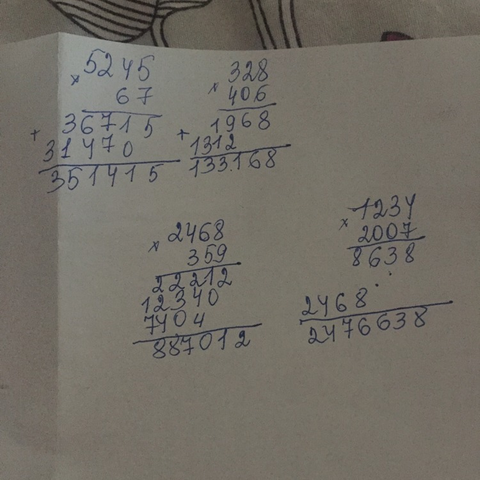 × 5245
67
+ 36715
31470
351415
× 328
406
+ 1968
1312
133168
× 2468
359
22212
12340
7404
887012
× 1234
2007
8638
2468
2476638